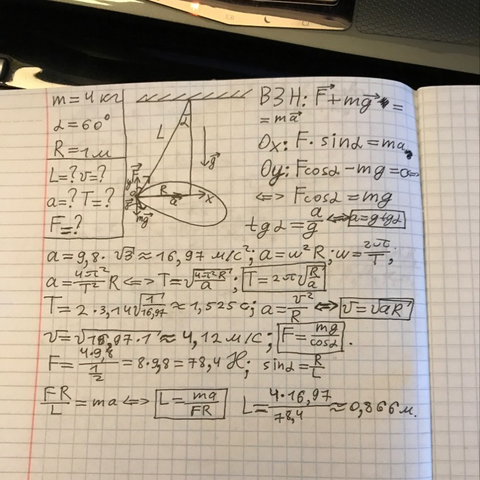 m = 4 кг
α = 60°
R = 1 м
L = ? v = ?
a = ? T = ?
F = ?
L
α
g
F
R
a
x
mg
ВЗН: F + mg =
= ma
Ox: F · sinα = ma
Oy: Fcosα - mg = 0 <=>
<=> Fcosα = mg
tgα = a/g <=> a = g tgα
a = 9,8 · √3 ≈ 16,97 м/с²; a = ω²R; ω = 2π/T;
a = 4π²/T² R <=> T = √(4π²R/a); T = 2π√(R/a)
T = 2 · 3,14 √(1/16,97) ≈ 1,525 с; a = v²/R <=> v = √(aR)
v = √(16,97 · 1) ≈ 4,12 м/с; F = mg/cosα.
F = 4·9,8/(1/2) = 8·9,8 = 78,4 Н; sinα = R/L
FR/L = ma <=> L = ma/FR L = 4·16,97/78,4 ≈ 0,866 м.